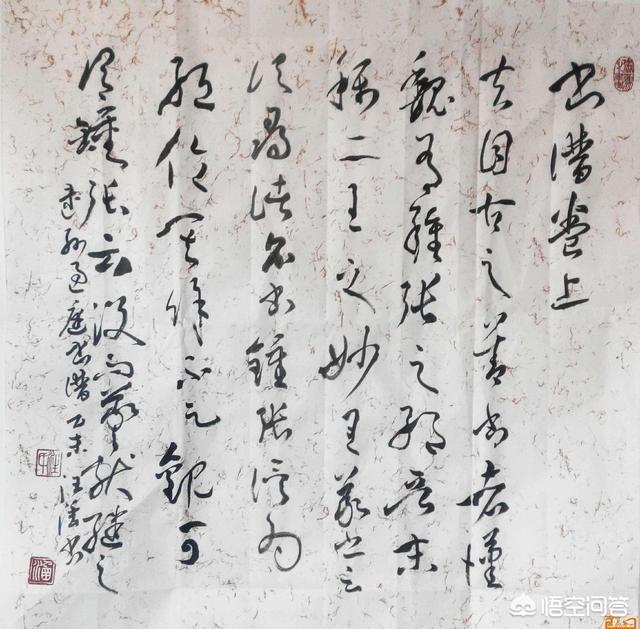 书谱卷上
夫自古之善书者汉
魏有鍾张之绝晋末
稱二王之妙王羲之云
顷寻诸名书鍾张信为
绝伦其馀不足观可
谓鍾张云没而羲献继之
孙过庭书谱
悟空问答